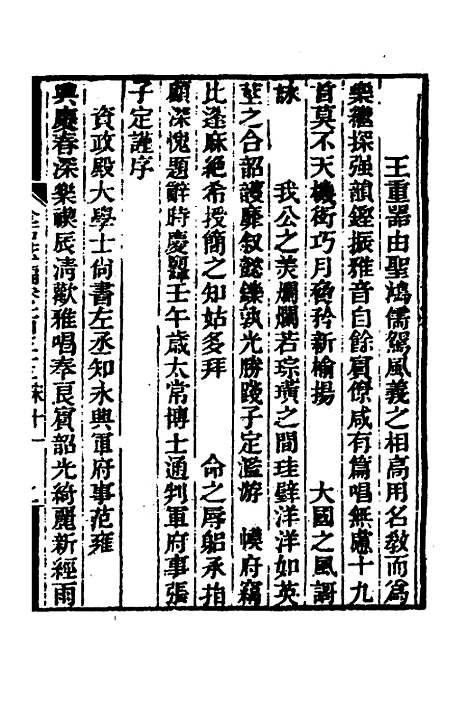 王重器由聖鴻儒篤風義之相高用名教而為
樂繼探强韻鏗振雅音自餘賓僚咸有篇唱無慮十九
首莫不天機衒巧月脅矜新榆揚　大國之風謌
詠　我公之美爛爛若琮璜之間珪璧洋洋如英
莖之合韶頀靡敘懿鑠孰光勝踐子定濫游　幙府竊
比逢麻絶希授簡之知姑多拜　命之辱躳承指
顧深愧題辭時慶曆壬午歲太常博士通判軍府事張
子定謹序
資政殿大學士尙書左丞知永興軍府事范雍
興慶春深樂禊辰淸歡雅唱奉良賓韶光綺麗新經雨